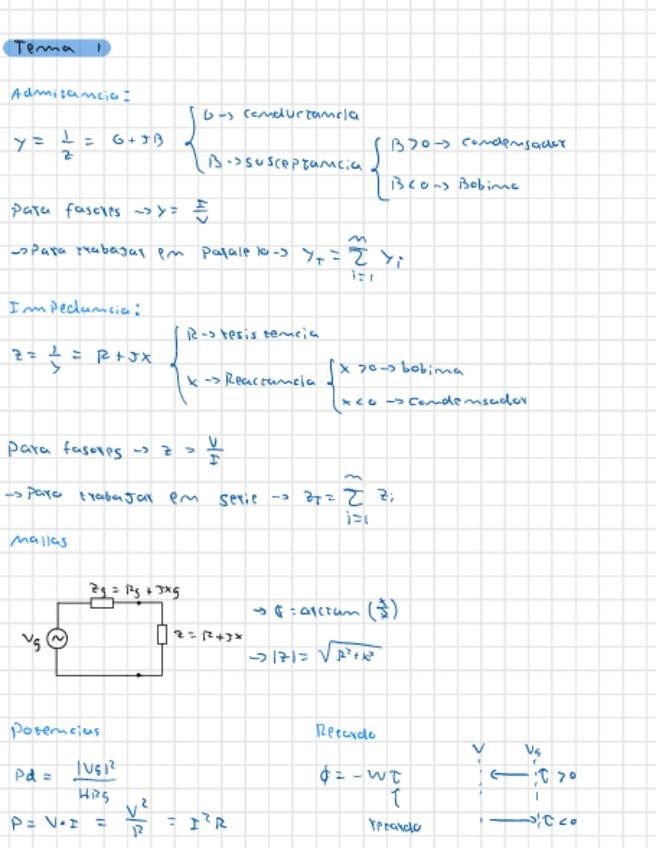 Tema 1
Admitancia:
Y = 1/Z = G + JB
G → conductancia
B → susceptancia
B>0 → condensador
B<0 → Bobina
Para fasores → Y = I/V
→ Para trabajar en paralelo → Y_T = Σ_{i=1}^{n} Y_i
Impedancia:
Z = 1/Y = R + JX
R → resistencia
X → Reactancia
X>0 → bobina
X<0 → condensador
Para fasores → Z = V/I
→ Para trabajar en serie → Z_T = Σ_{i=1}^{n} Z_i
Mallas
Zg = Rg + JXg
Vg
Z = R + JX
→ |Z| = √(R²+X²)
Potencias
Pd = |Vg|²/4Rg
P = V·I = V²/R = I²R
Retardo
ϕ = -Wτ
retardo
V Vg
τ>0
τ<0